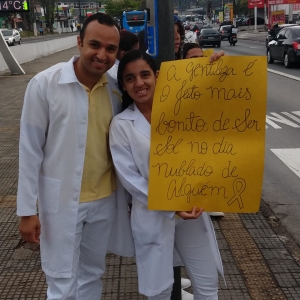 4°C
A gentileza é
o jeito mais
bonito de ser
sol no dia
nublado de
Alguém